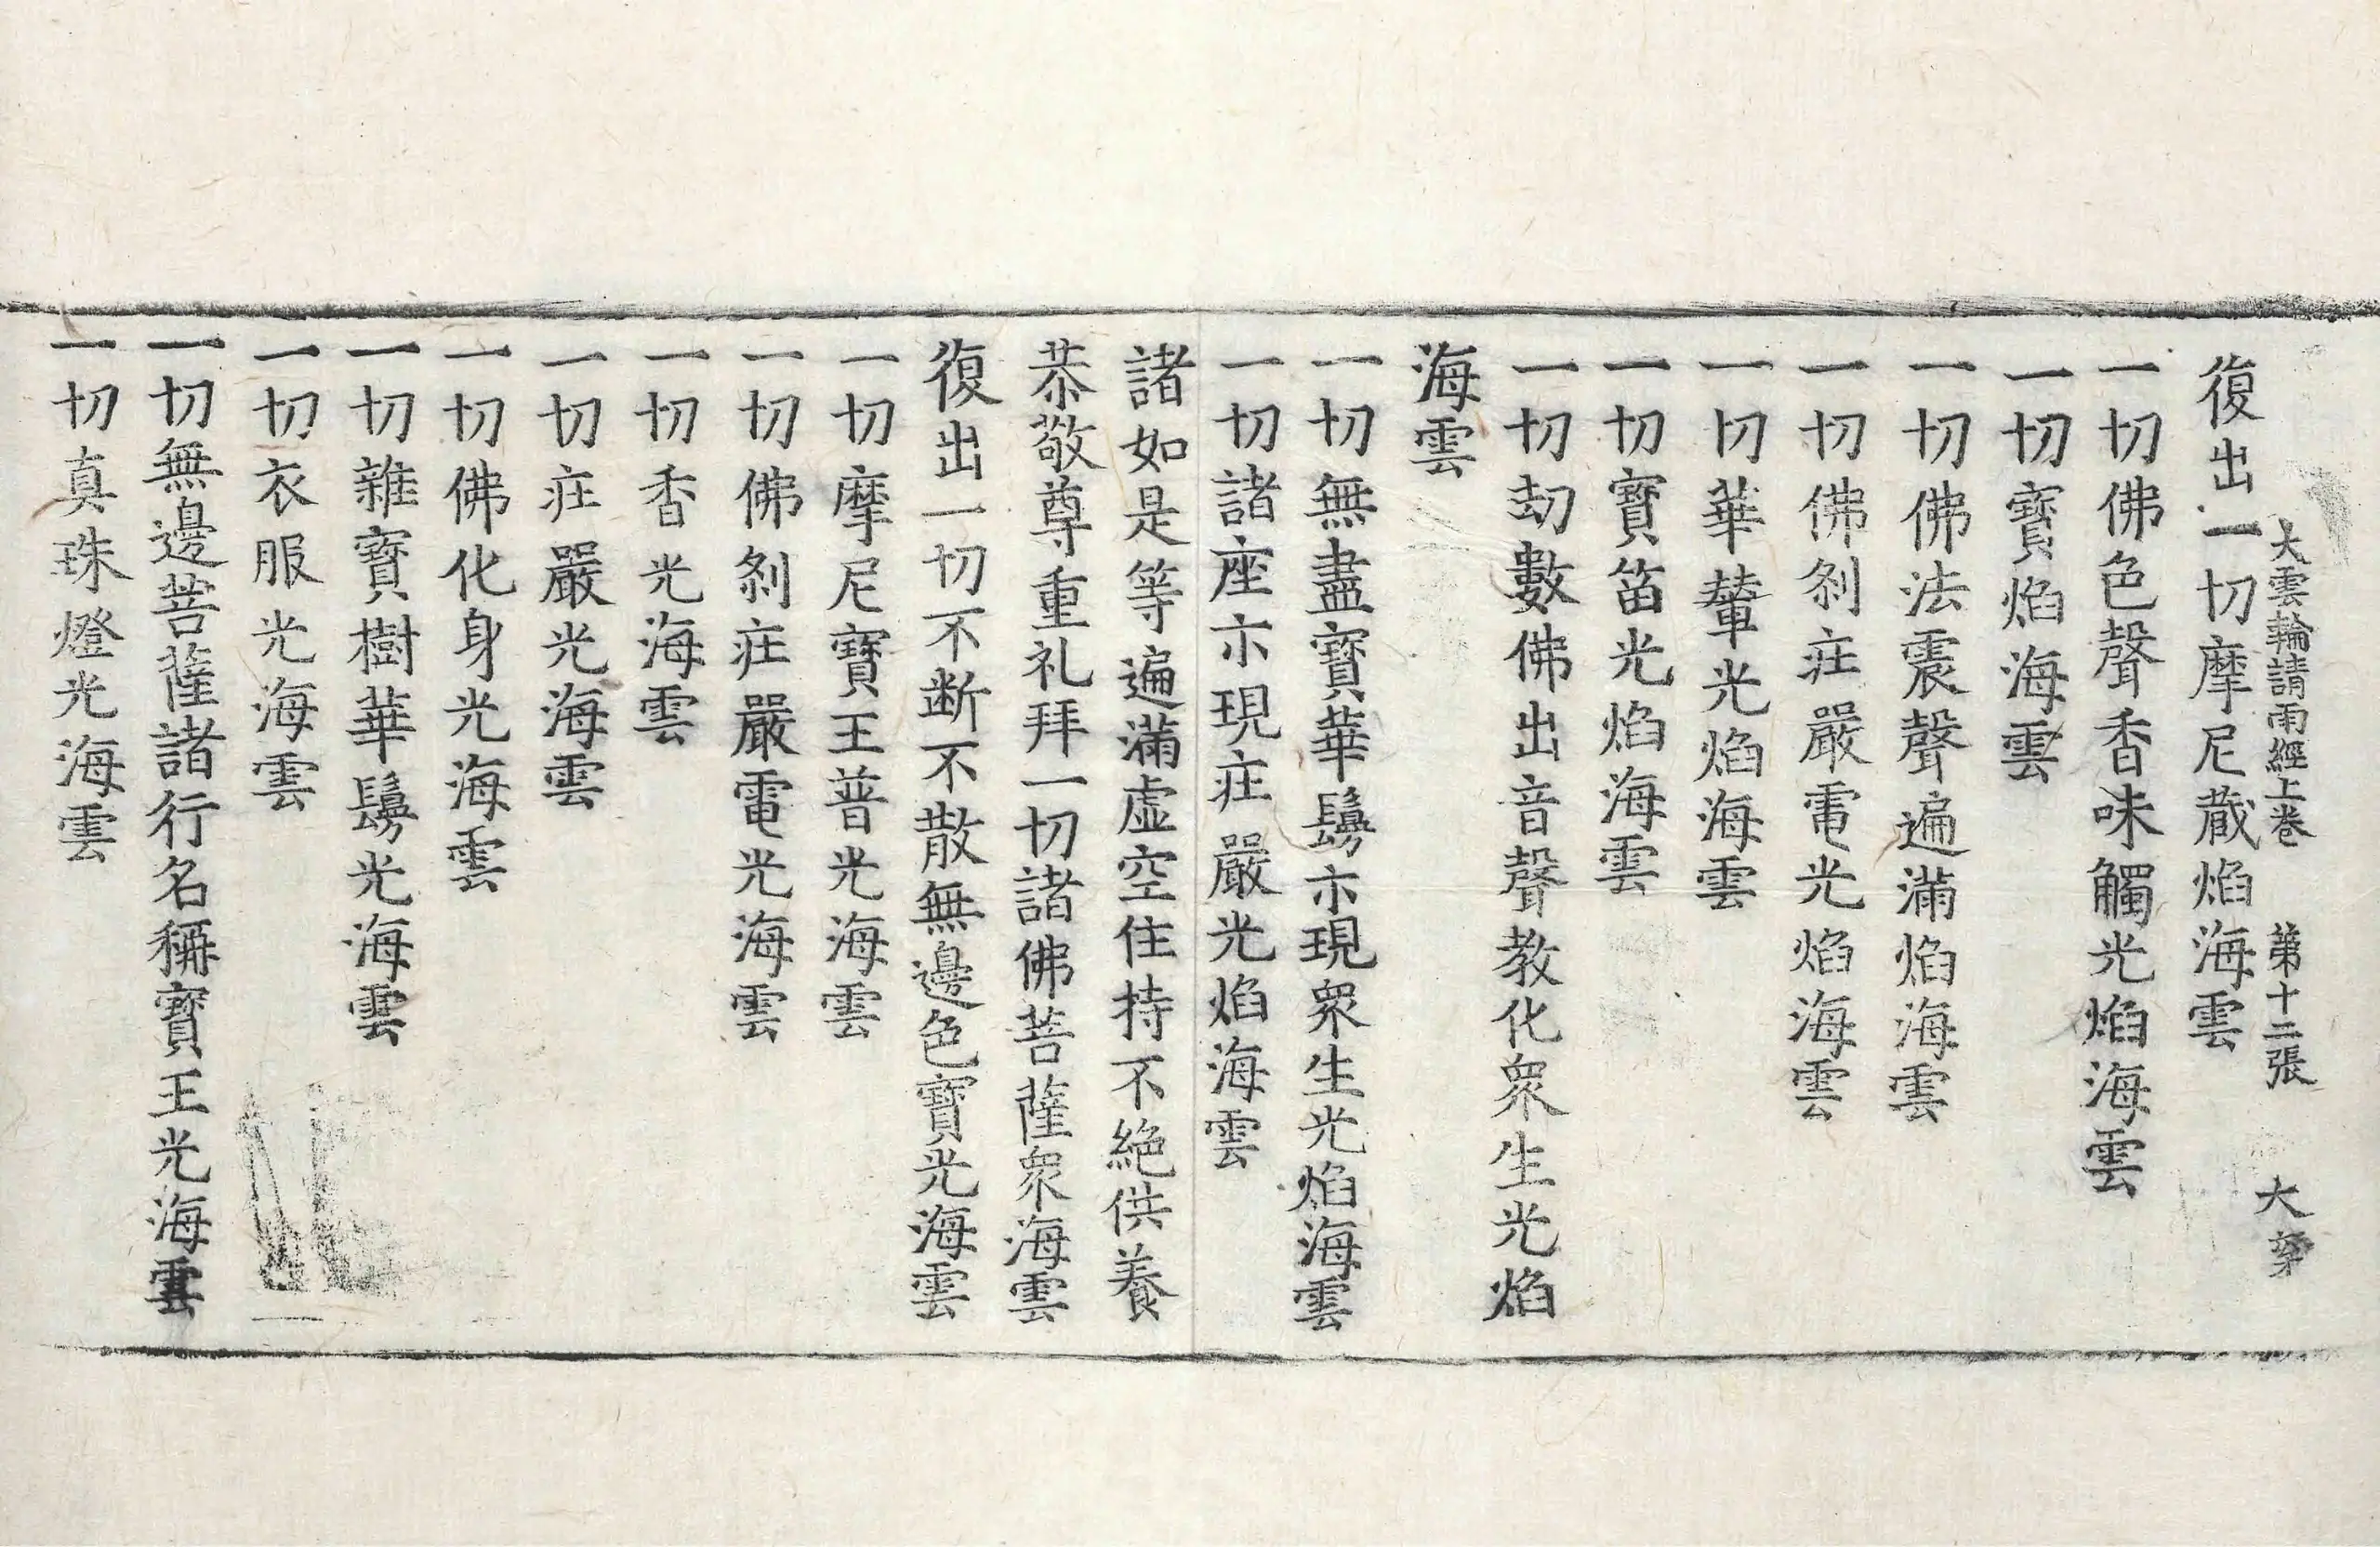 大雲輪請雨經上卷 第十二張 大
復出一切摩尼蔵焰海雲
一切佛色聲香味觸光焰海雲
一切寶焰海雲
一切佛法震聲遍滿焰海雲
一切佛剎莊嚴電光焰海雲
一切華輦光焰海雲
一切寶笛光焰海雲
一切劫數佛出音聲教化衆生光焰
海雲
一切無盡寶華鬘示現衆生光焰海雲
一切諸座示現莊嚴光焰海雲
諸如是等遍滿虚空住持不絕供養
恭敬尊重礼拜一切諸佛菩薩衆海雲
復出一切不断不散無邊色寶光海雲
一切摩尼寶王普光海雲
一切佛剎莊嚴電光海雲
一切香光海雲
一切莊嚴光海雲
一切佛化身光海雲
一切雜寶樹華鬘光海雲
一切衣服光海雲
一切無邊菩薩諸行名稱寶王光海雲
一切真珠燈光海雲